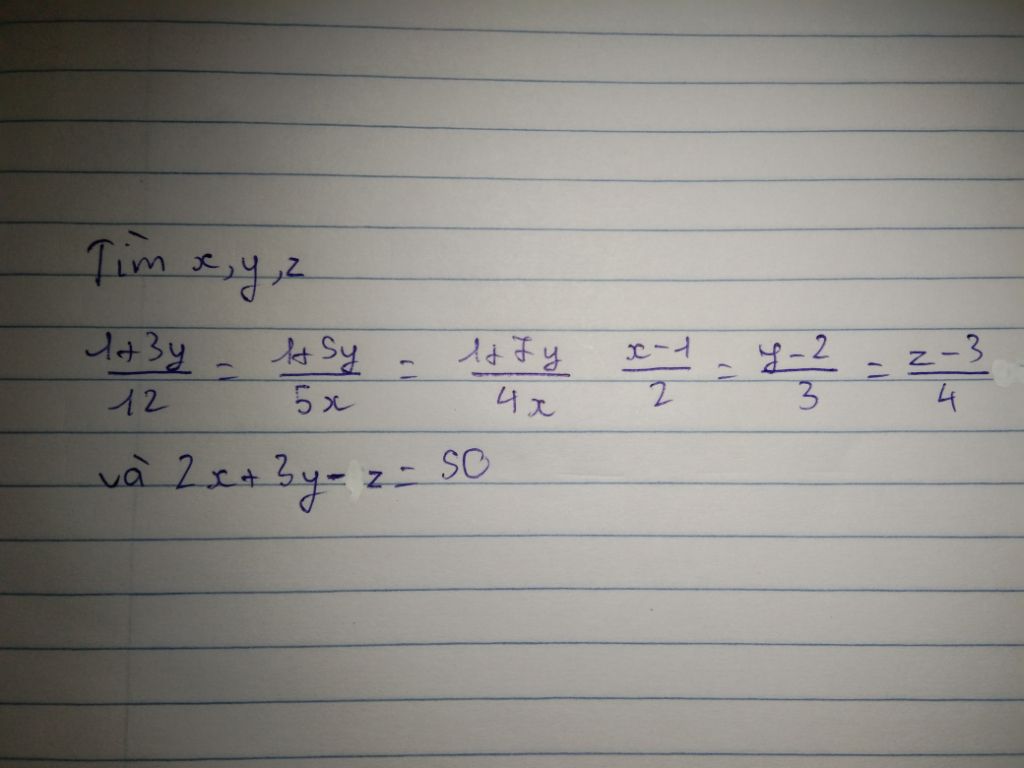 Tìm x, y, z
(1+3y)/12 = (1+5y)/5x = (1+7y)/4x (x-1)/2 = (y-2)/3 = (z-3)/4
và 2x+3y- z = 50